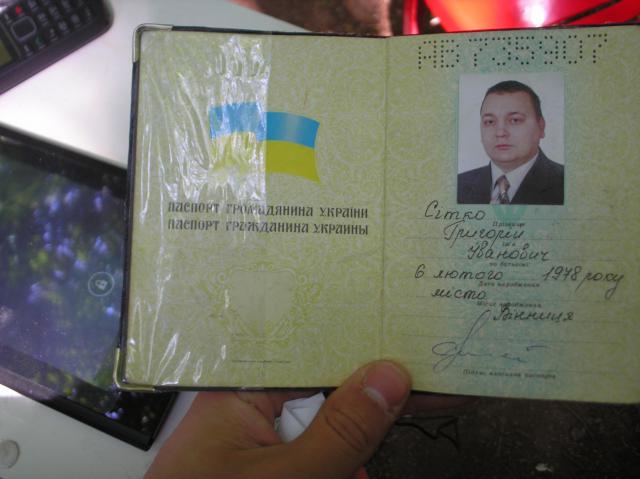 АВ735907
ПАСПОРТ ГРОМАДЯНИНА УКРАЇНИ
ПАСПОРТ ГРАЖДАНИНА УКРАИНЫ
Сітко
Прізвище
Григорій
Ім'я
Іванович
по батькові
6 лютого 1978 року
Дата народження
місто
Місце народження
Вінниця
Підпис власника паспорта